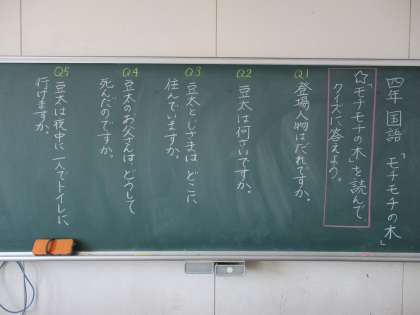 四年 国語 「モチモチの木」
☆「モチモチの木」を読んで
クイズに答えよう。
Q1
登場人物はだれですか。
Q2
豆太は何さいですか。
Q3
豆太とじさまは どこに
住んでいますか。
Q4
豆太のお父さんは どうして
死んだのですか。
Q5
豆太は夜中に 一人でトイレに
行けますか。